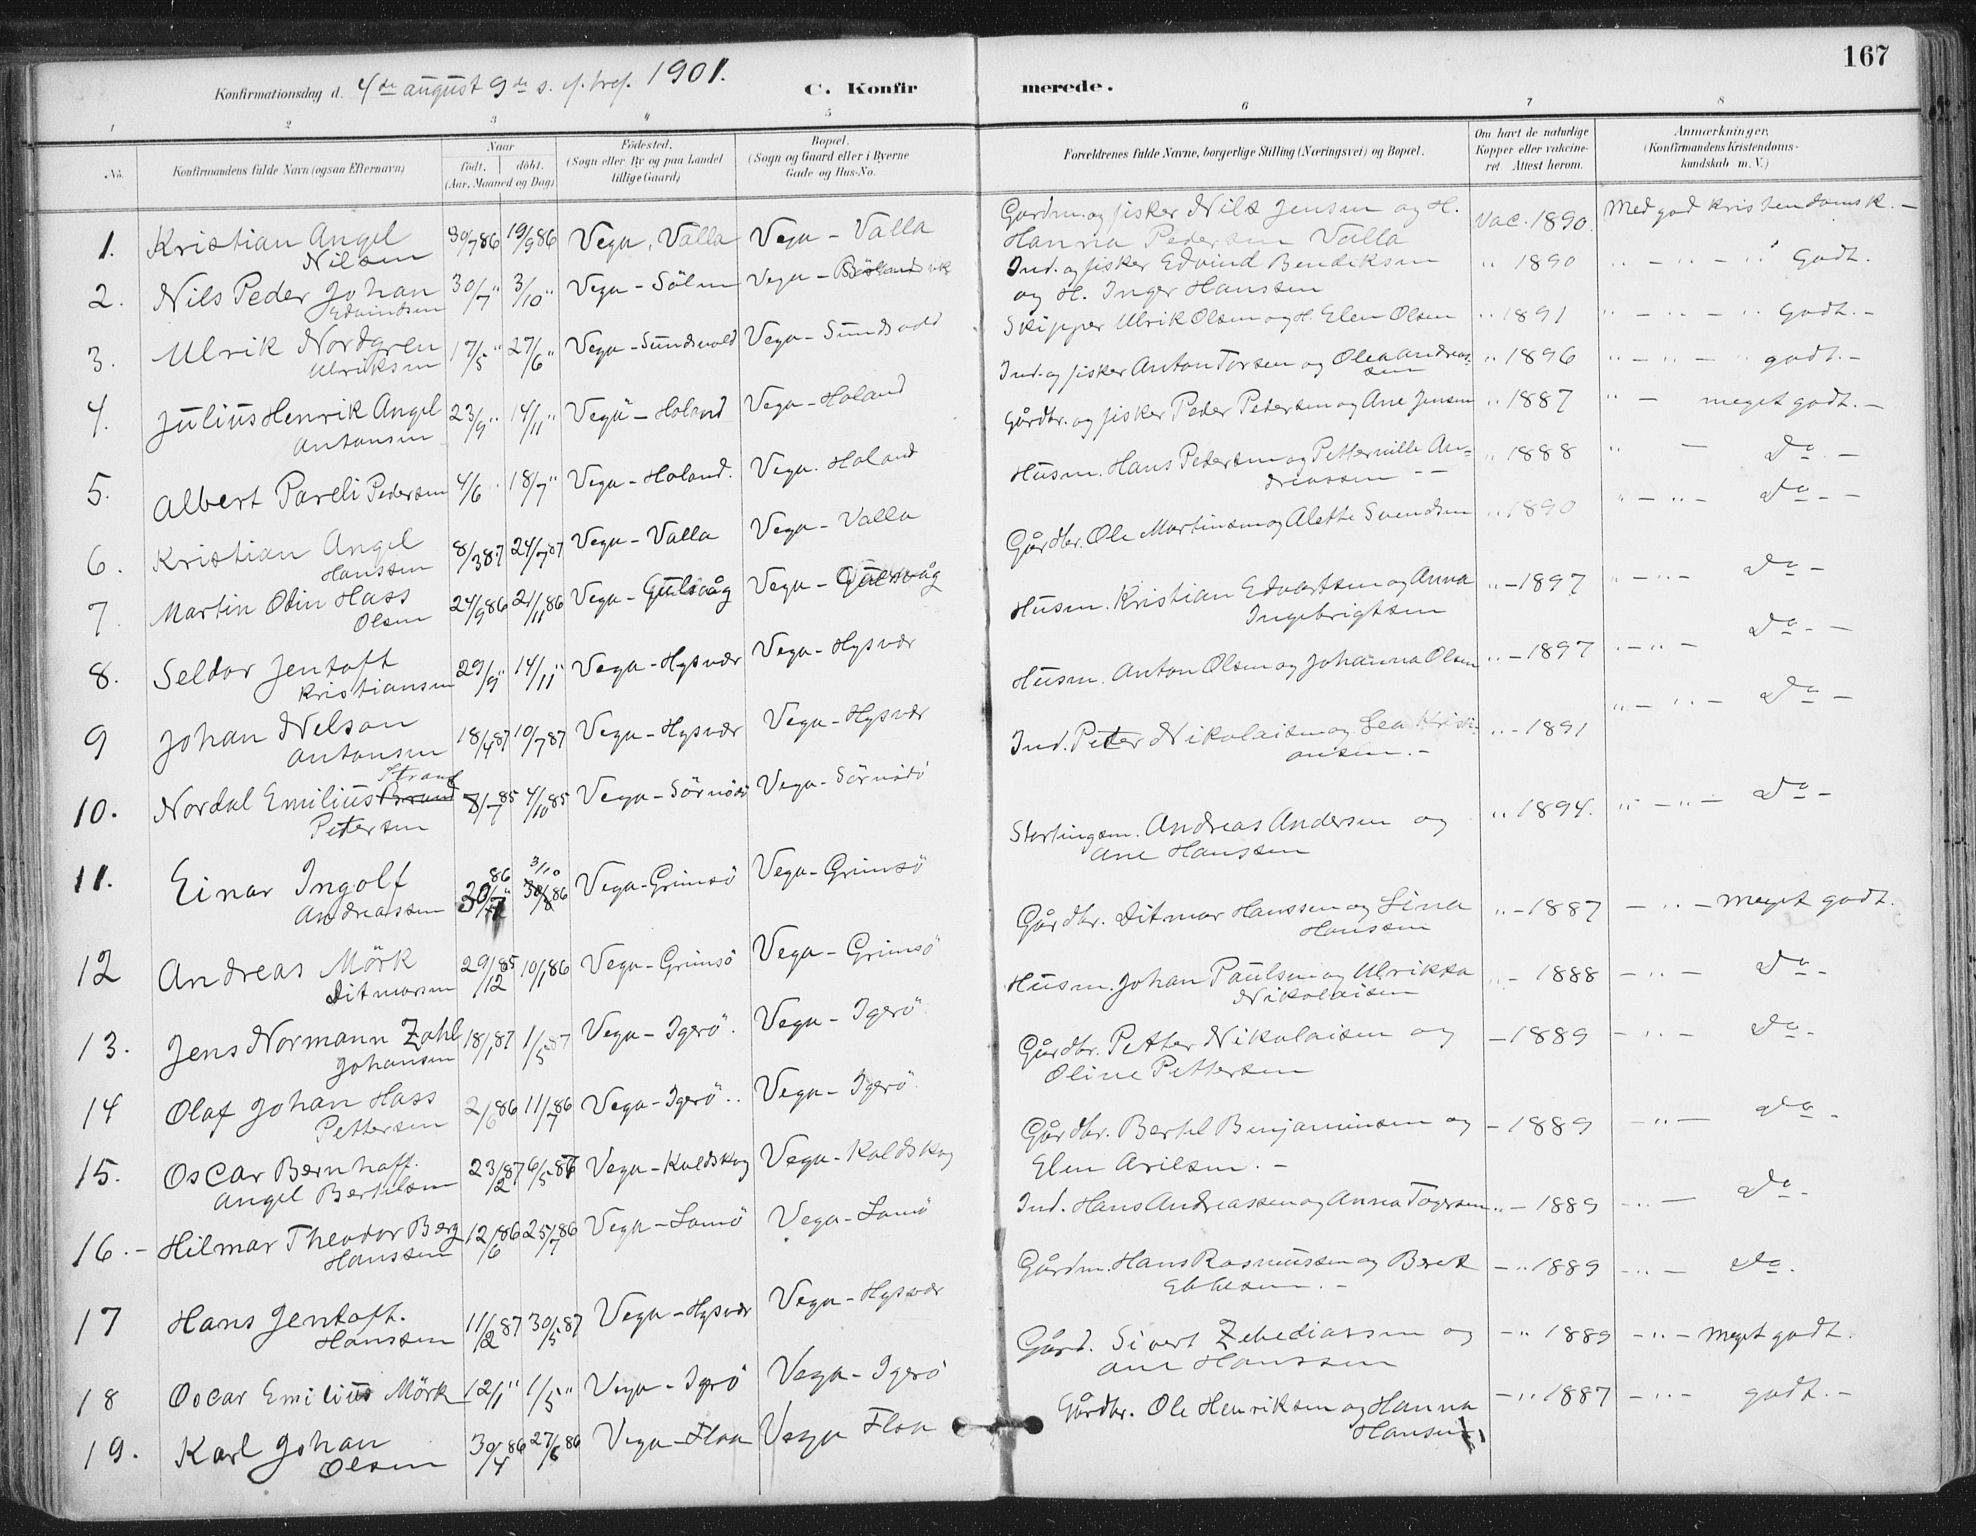 167
Konfirmationsdag d. 4de august 9de s. e. tref. 1901.
C. Konfirmerede.
1 2 3 4 5 6 7 8
No.
Konfirmandens fulde Navn (ogsaa Efternavn)
Naar
født. døbt.
(Aar, Maaned og Dag)
Fødested.
(Sogn eller By og paa Landet
tillige Gaard)
Bopæl.
(Sogn og Gaard eller i Byerne
Gade og Hus-No.
Forældrenes fulde Navne, borgerlige Stilling (Næringsvei) og Bopæl.
Om havt de naturlige
Kopper eller vakcineret. Attest herom.
Anmærkninger.
(Konfirmandens Kristendomskundskab m. V.)
1. Kristian Angel Nilsen 30/7 86 19/9 86 Vega, Valla Vega - Valla Gardm. og fisker Nils Jensen og H. Hanna Pedersen Valla Vac. 1890. Med god kristendomsk. -
2. Nils Peder Johan Edvindsen 30/7 " 3/10 " Vega - Sølen Vega - Ind. og fisker Edvind Bendiksen og H. Inger Hanssen " 1890 " - " - " Godt.
3. Ulrik Nordgren Ulriksen 17/5 " 27/6 " Vega - Sundsvold Vega - Sundsvold Skipper Ulrik Olsen og H. Elen Olsen " 1891 " - " - " Godt. -
4. Julius Henrik Angel Antonsen 23/9 " 14/11 " Vega - Holand Vega - Holand Ind. og fisker Anton Torsen og Olea Andreassen " 1896 " - " - " godt. -
5. Albert Pareli Pedersen 4/6 " 18/7 " Vega - Holand. Vega. Holand Gårdbr. og fisker Peder Petersen og Ane Jensen " 1887 " - meget godt. -
6. Kristian Angel Hanssen 8/3 87 24/7 87 Vega - Valla Vega - Valla Husm. Hans Pedersen og Petternille Andreassen - - " 1888 " - Do. -
7. Martin Odin Hass Olsen 24/9 86 21/11 86 Vega - Gulsvåg Vega - Gulsvåg Gårdbr. Ole Martinsen og Alette Svendsen " 1890 " - " - Do - -
8. Seldor Jentoft Kristiansen 29/9 " 14/11 " Vega - Hysvær Vega - Hysvær Husm. Kristian Edvartsen og Anna Ingebrigtsen " - 1897 " - " - Do -
9 Johan Nelson Antonsen 18/4 87 10/7 87 Vega - Hysvær Vega - Hysvær Husm. Anton Olsen og Johanna Olsen " - 1897 " - " - Do. -
10. Nordal Emilius Brand Strand Petersen 8/7 85 4/10 85 Vega - Vega - Ind. Peter Nikolaisen og Lea Kristiansen. - " - 1891 " - " - Do -
11. Einar Ingolf Andreassen 86 3/10 30/8 86 Vega - Grimsö Vega - Grimsö Stortingsm. Andreas Andersen og Ane Hanssen " 1894. " - " - Do -
12 Andreas Mörk Ditmarsen 29/12 85 10/1 86 Vega - Grimsö Vega - Grimsö Gårdbr. Ditmar Hanssen og Lina Hanssen " - 1887 - " - meget godt.
13. Jens Normann Zahl Johansen 18/1 87 1/5 87 Vega - Igerö. Vega - Igerö Husm. Johan Paulsen og Ulrikka Nikolaisen " - 1888 - " - Do -
14 Olaf Johan Hass Pettersen 2/6 86 11/7 86 Vega - Igerö.. Vega - Igerö. Gårdbr. Petter Nikolaisen og Oline Pettersen - 1889 - " - Do -
15. Oscar Bernhoff. Angel Bertelsen 23/2 87 6/5 Vega - Koldskog Vega - Koldskog Gårdbr. Bertel Benjaminsen og Elen Arilsen. - - 1889 - " - Do -
16. - Hilmar Theodor Berg Hanssen 12/6 86 25/7 86 Vega - Lamö Vega - Lamö Ind. Hans Andreassen og Anna Togersen " - 1889 - " - Do -
17 Hans Jentoft. Hanssen 11/2 87 30/5 87 Vega - Hysvær Vega - Hysvær Gårdm. Hans Rasmussen og Beret Ebbesen. - - " 1889 - " - Do.
18 Oscar Emilius Mörk 12/1 " 1/5 " Vega - Igerö Vega - Igerö Gård. Sivert Zebediassen og Ane Hanssen - " 1889 - " - meget godt.
19. Karl Johan Olsen 30/4 86 27/6 86 Vega - Floa Vega Floa Gårdbr. Ole Henriksen og Hanna Hansen - " 1887 - " - godt. -